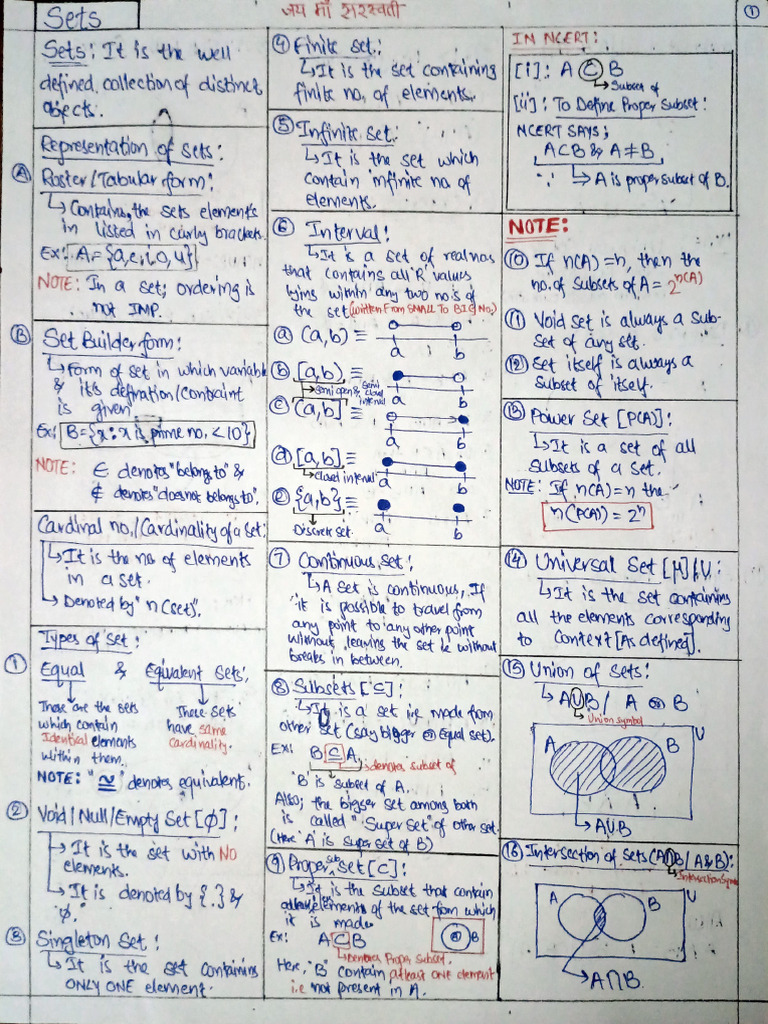 Sets
जय माँ सरस्वती
①
Sets: It is the well
defined collection of distinct
objects.
Representation of sets:
Ⓐ Roster/Tabular form:
↳ Contains the sets elements
in listed in curly brackets.
Ex: A = {a,e,i,o,u}
NOTE: In a set; ordering is
not IMP.
Ⓑ Set Builder form:
↳ Form of set in which variable
& it's defination/Contraint
is given
Ex: B = {x : x is prime no. < 10}
NOTE: ∈ denotes "belong to" &
∉ denotes "does not belongs to".
Cardinal no./Cardinality of a set:
↳ It is the no of elements
in a set.
↳ Denoted by "n(set)".
Types of set:
① Equal & Equivalent sets:
These are the sets
which contain
Identical elements
within them.
These sets
have same
cardinality.
NOTE: "≅" denotes equivalent.
② Void/Null/Empty Set [ϕ]:
↳ It is the set with NO
elements.
↳ It is denoted by { } &
'ϕ'.
③ Singleton Set:
↳ It is the set containing
ONLY ONE element.
④ Finite set:
↳ It is the set containing
finite no. of elements.
⑤ Infinite set:
↳ It is the set which
contain infinite no. of
elements.
⑥ Interval:
↳ It is a set of real nos
that contains all 'R' values
lying within any two no.s of
the set (written From SMALL To BIG No.)
ⓐ (a,b) ≡
a b
ⓑ [a,b) ≡
a b
Semi open & Semi closed interval
ⓒ (a,b] ≡
a b
ⓓ [a,b] ≡
Closed interval
a b
ⓔ {a,b} ≡
Discrete set.
a b
⑦ Continuous Set:
↳ A set is continuous, If
it is possible to travel from
any point to any other point
without leaving the set i.e without
breaks in between.
⑧ Subsets [⊆]:
↳ It is a set i.e made from
other set (say bigger or Equal set).
Ex: B ⊆ A
denotes subset of
"B" is subset of A.
Also; the bigger set among both
is called "Super set" of other set
(Here 'A' is super set of B)
⑨ Proper subset [⊂]:
↳ It is the subset that contain
elements of the set from which
it is made
Ex: A ⊂ B
Denotes Proper Subset.
A B
Here, "B" contain atleast ONE element
i.e not present in A.
IN NCERT:
[i]: A ⊂ B
↳ Subset of
[ii]: To Define Proper Subset:
NCERT SAYS;
A⊂B & A≠B
∵ ↳ A is proper subset of B.
NOTE:
⑩ If n(A)=n, then the
no. of subsets of A = 2^n(A)
⑪ Void set is always a sub-
set of any set.
⑫ Set itself is always a
subset of itself.
⑬ Power Set [P(A)]:
↳ It is a set of all
subsets of a set.
NOTE: If n(A)=n the
n(P(A)) = 2ⁿ
⑭ Universal Set [μ]/U:
↳ It is the set containing
all the elements corresponding
to Context [As defined].
⑮ Union of Sets:
↳ A∪B / A or B
Union symbol
U
A B
→ A∪B
⑯ Intersection of sets (A∩B / A & B):
U
A B
→ A∩B.